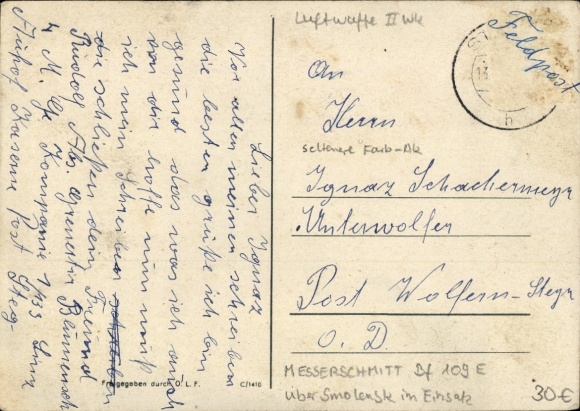 Lieber Ignaz
Vor allem meinen schreiben
die besten grüße ich bin
gesund das was ich auch
von dir hoffe nun muß
ich mein schreiben
die schließen dein Freund
Rudolf
M. Ge Kompanie 1/133 Linz
Post Steg-
Freigegeben durch O. L. F. C/1410
Luftwaffe II Wk
Feldpost
An
Herrn
seltenere Farb-Ak
Ignaz Schachermeyr
Unterwolfern
Post Wolfern-Steyr
O. D.
MESSERSCHMITT Bf 109 E
über Smolensk im Einsatz
30€